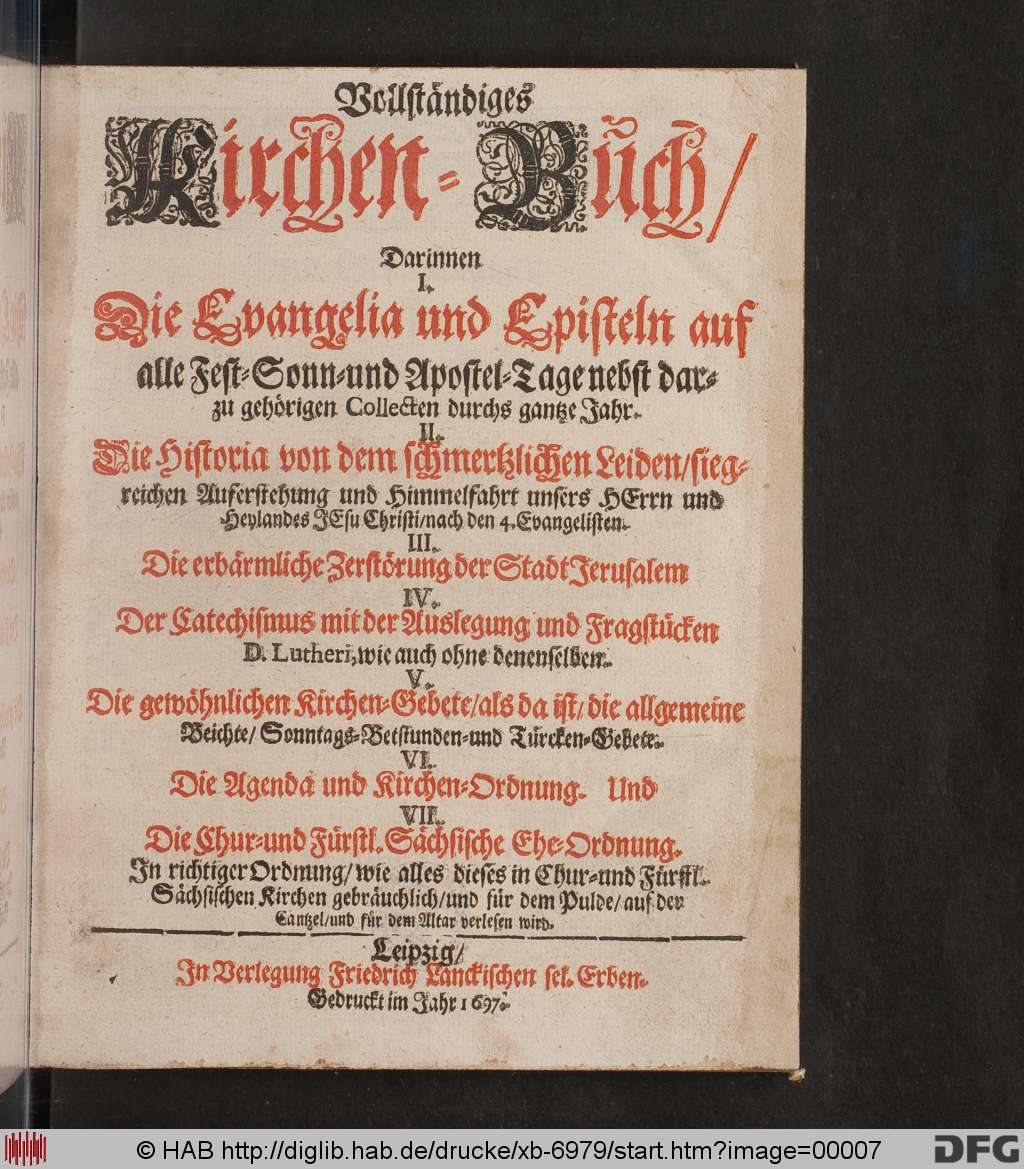 Vollständiges
Kirchen-Buch/
Darinnen
I.
Die Evangelia und Episteln auf
alle Fest-Sonn-und Apostel-Tage nebst dar-
zu gehörigen Collecten durchs gantze Jahr.
II.
Die Historia von dem schmertzlichen Leiden/sieg-
reichen Auferstehung und Himmelfahrt unsers HErrn und
Heylandes JEsu Christi/nach den 4. Evangelisten.
III.
Die erbärmliche Zerstörung der Stadt Jerusalem
IV.
Der Catechismus mit der Auslegung und Fragstücken
D. Lutheri, wie auch ohne denenselben.
V.
Die gewöhnlichen Kirchen-Gebete/als da ist/die allgemeine
Beichte/ Sonntags-Betstunden-und Türcken-Gebete.
VI.
Die Agenda und Kirchen-Ordnung. Und
VII.
Die Chur-und Fürstl. Sächsische Ehe-Ordnung.
In richtiger Ordnung/wie alles dieses in Chur-und Fürstl.
Sächsischen Kirchen gebräuchlich/und für dem Pulde/auf der
Cantzel/und für dem Altar verlesen wird.
Leipzig/
In Verlegung Friedrich Lanckischen sel. Erben.
Gedruckt im Jahr 1697.
© HAB http://diglib.hab.de/drucke/xb-6979/start.htm?image=00007
DFG